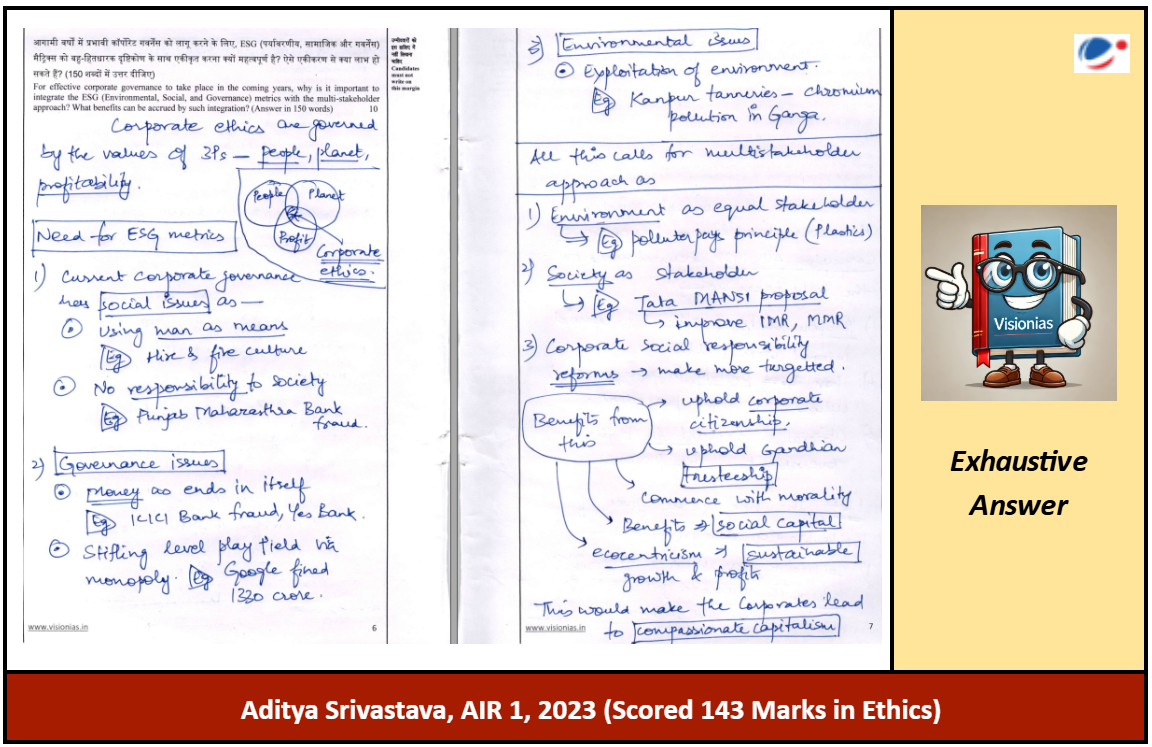 आगामी वर्षों में प्रभावी कॉर्पोरेट गवर्नेंस को लागू करने के लिए, ESG (पर्यावरणीय, सामाजिक और गवर्नेंस)
मैट्रिक्स को बहु-हितधारक दृष्टिकोण के साथ एकीकृत करना क्यों महत्वपूर्ण है? ऐसे एकीकरण से क्या लाभ हो
सकते हैं? (150 शब्दों में उत्तर दीजिए)
For effective corporate governance to take place in the coming years, why is it important to
integrate the ESG (Environmental, Social, and Governance) metrics with the multi-stakeholder
approach? What benefits can be accrued by such integration? (Answer in 150 words) 10
उम्मीदवारों को
इस हाशिए में
नहीं लिखना
चाहिए
Candidates
must not
write on
this margin
Corporate ethics are governed
by the values of 3Ps – people, planet,
profitability.
People
Planet
Profit
Corporate
ethics.
Need for ESG metrics
1) Current corporate governance
has social issues as –
Using man as means
Eg Hire & fire culture
No responsibility to society
Eg Punjab Maharasthra Bank
fraud.
2) Governance issues
Money as ends in itself
Eg ICICI Bank fraud, Yes Bank.
Stifling level play field via
monopoly. Eg Google fined
1330 crore.
www.visionias.in
6
3) Environmental issues
Exploitation of environment.
Eg Kanpur tanneries – chromium
pollution in Ganga.
All this calls for multistakeholder
approach as
1) Environment as equal stakeholder
→ Eg polluter pays principle (Plastics)
2) Society as stakeholder
→ Eg Tata MANSI proposal
→ improve IMR, MMR
3) Corporate social responsibility
reforms → make more targetted.
Benefits from
this
→ uphold corporate
citizenship.
→ uphold Gandhian
trusteeship
Commerce with morality
Benefits ⇒ social capital
ecocentricism → sustainable
growth & profits
This would make the Corporates lead
to compassionate capitalism
www.visionias.in
7
Visionias
Exhaustive
Answer
Aditya Srivastava, AIR 1, 2023 (Scored 143 Marks in Ethics)